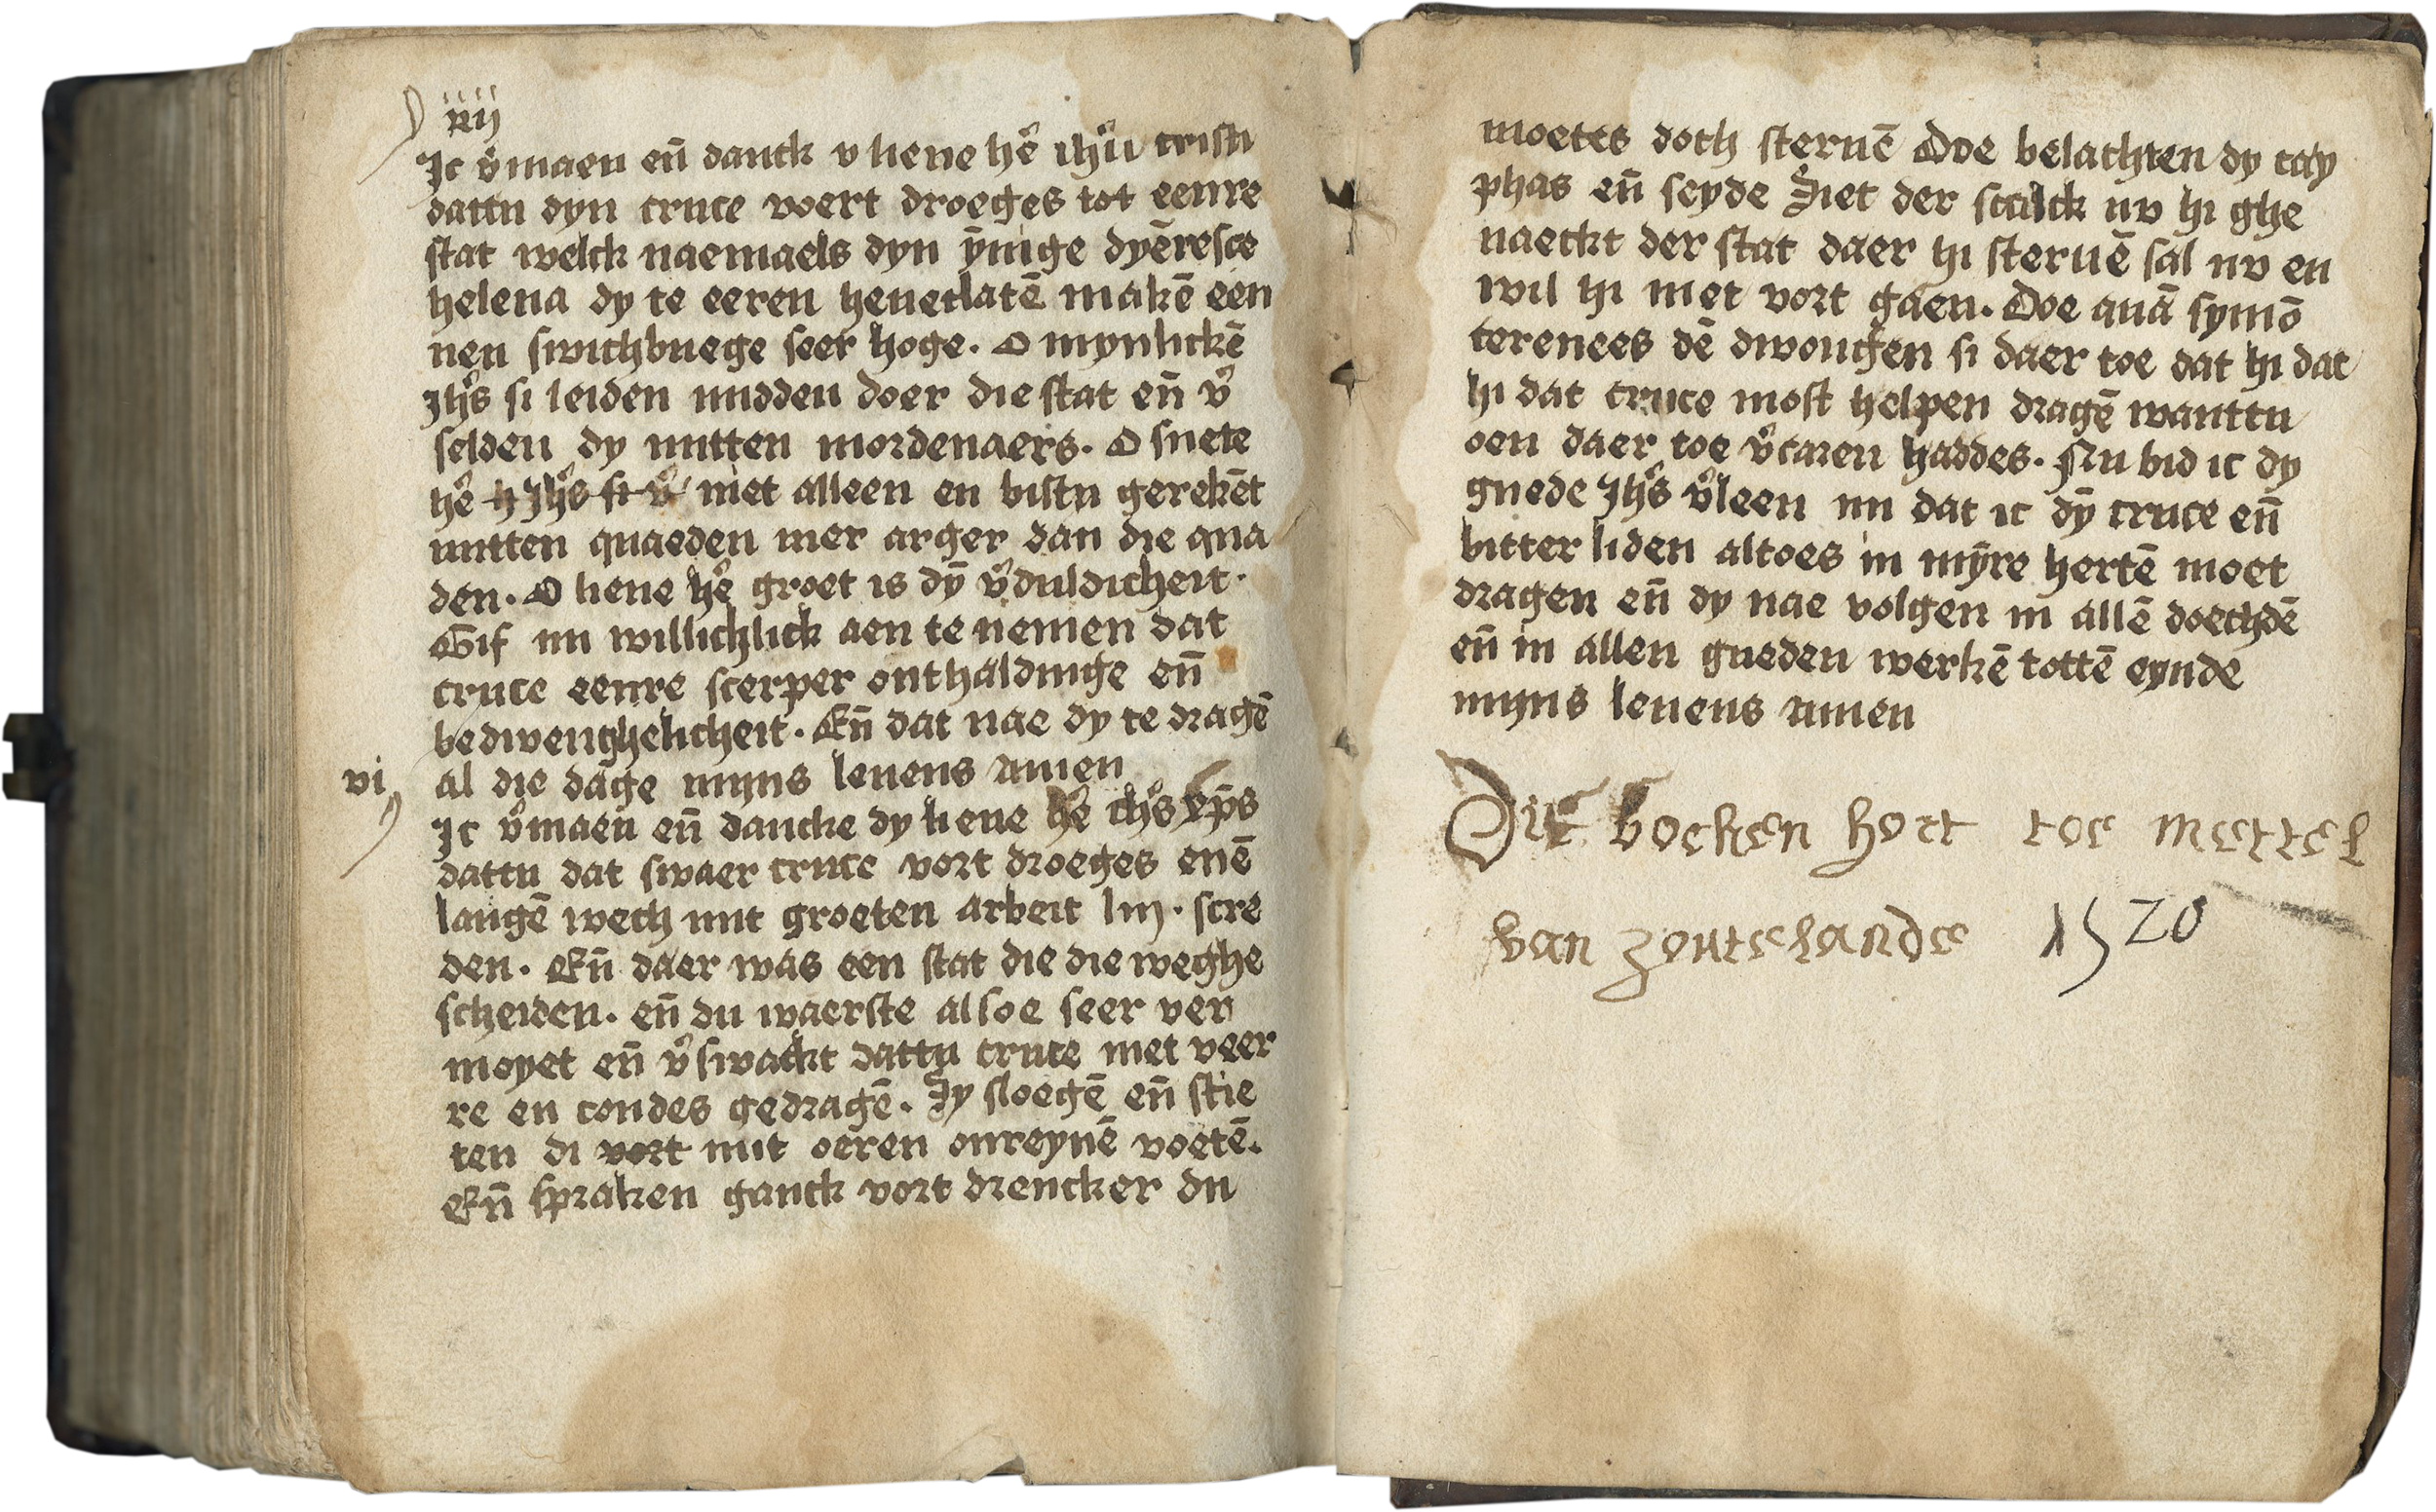 Ic v̄maen en̄ danck v lieue hē ih̄u cristi
dattu dyn cruce voert droeges tot eenre
stat welck naemaels dyn ȳnige dyēresce
helena dy te eeren heuet latē makē een
nen swichbuege seer hoge. O mynlickē
Jhs̄ si leiden midden doer die stat en̄ v̄
selden dy mitten mordenaers. O suete
hē niet alleen en bistu gerekēt
mitten quaeden mer arger dan die qua
den. O lieue hē groet is dȳ v̄duldicheit.
Gif mi willichlick aen te nemen dat
cruce eenre scerper onthaldinge en̄
bedwenghelicheit. En̄ dat nae dy te dragē
vi al die dage myns leuens amen
Ic v̄maen en̄ dancke dy lieue hē ihs̄ xp̄s
dattu dat swaer cruce vort droeges enē
langē wech mit groeten arbeit liij. scre
den. En̄ daer was een stat die die weghe
scheiden. en̄ du waerste alsoe seer ver
moyet en̄ v̄swackt dattu cruce niet veer
re en condes gedragē. Sy sloegē en̄ stie
ten di vort mit oeren onreynē voetē.
En̄ spraken ganck vort drencker du
moetes doch steruē Doe belachten dy cay
phas en̄ seyde Siet der scalck nv hi ghe
naeckt der stat daer hi steruē sal nv en
wil hi niet vort gaen. Doe quā symō
cerenees dē dwongen si daer toe dat hi dat
hi dat cruce most helpen dragē wanttu
oen daer toe v̄caren haddes. Nu bid ic dy
guede Jhs̄ v̄leen mi dat ic dȳ cruce en̄
bitter liden altoes in mȳre hertē moet
dragen en̄ dy nae volgen in allē doechdē
en̄ in allen gueden werkē tottē eynde
myns leuens amen
Dit boeken hort toe mettel
van zoutelande 1520